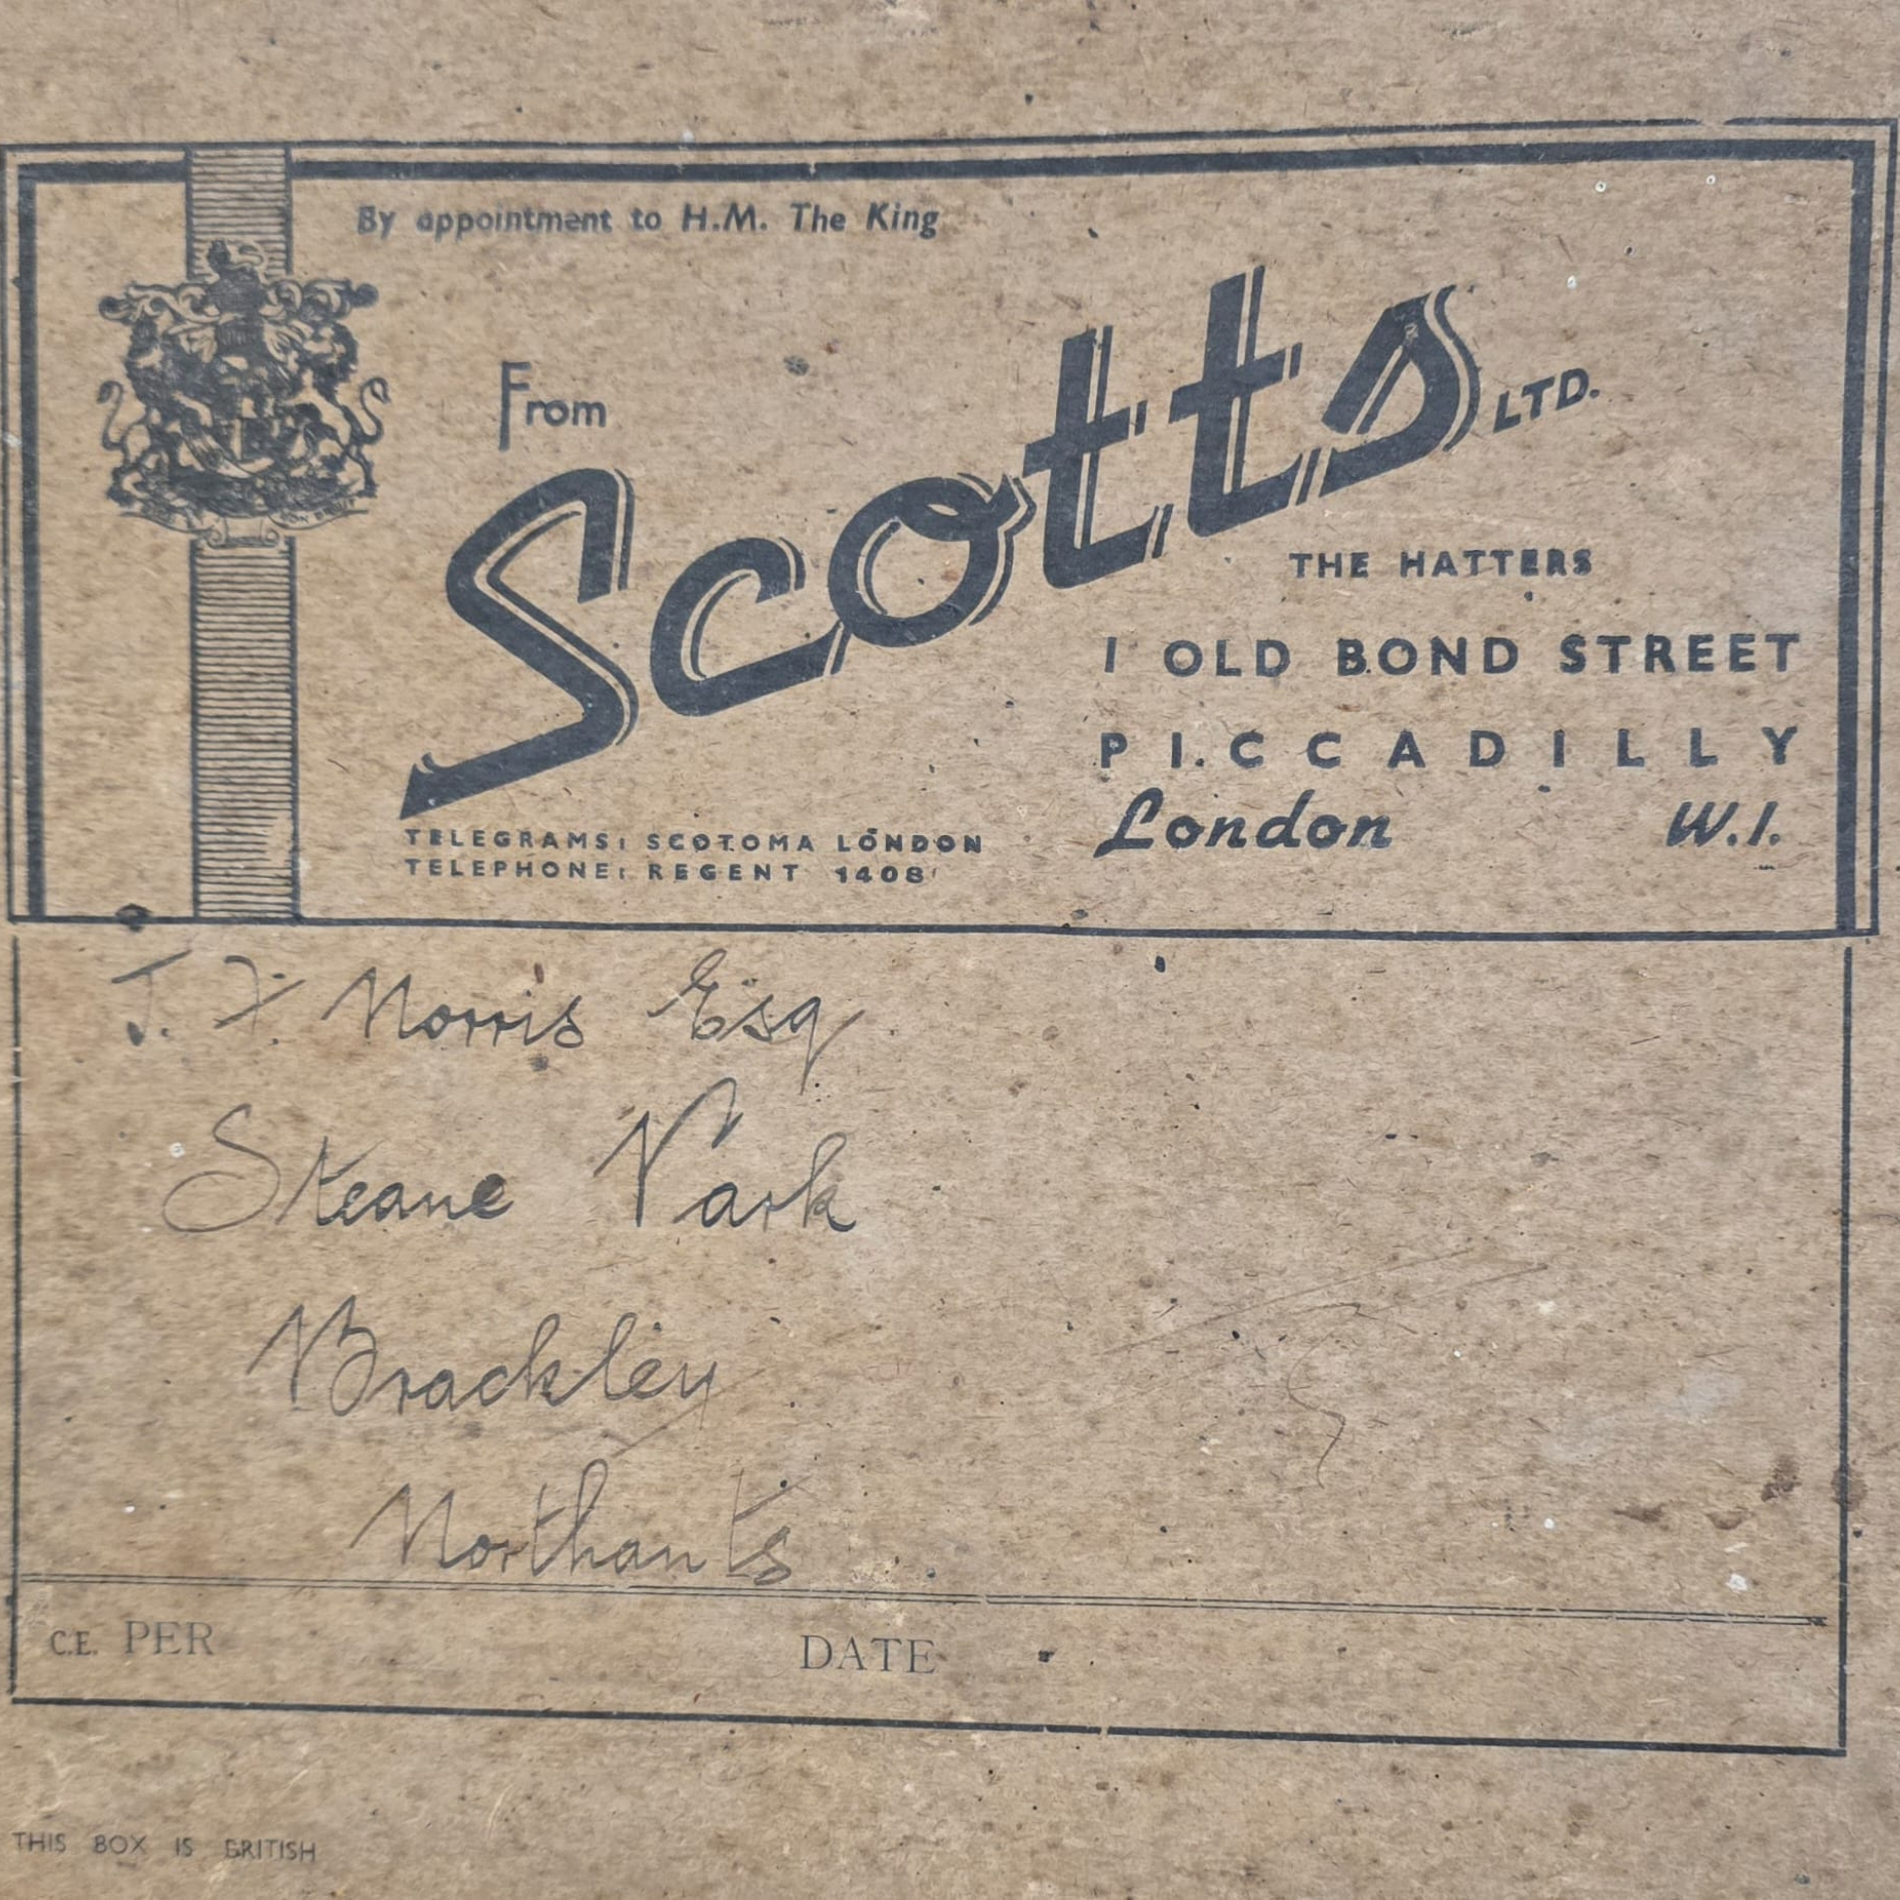 By appointment to H.M. The King
From
Scotts LTD.
THE HATTERS
1 OLD BOND STREET
PICCADILLY
London W.1.
TELEGRAMS: SCOTOMA LONDON
TELEPHONE: REGENT 1408
J. F. Morris Esq
Steane Park
Brackley
Northants
C.E. PER DATE
THIS BOX IS BRITISH